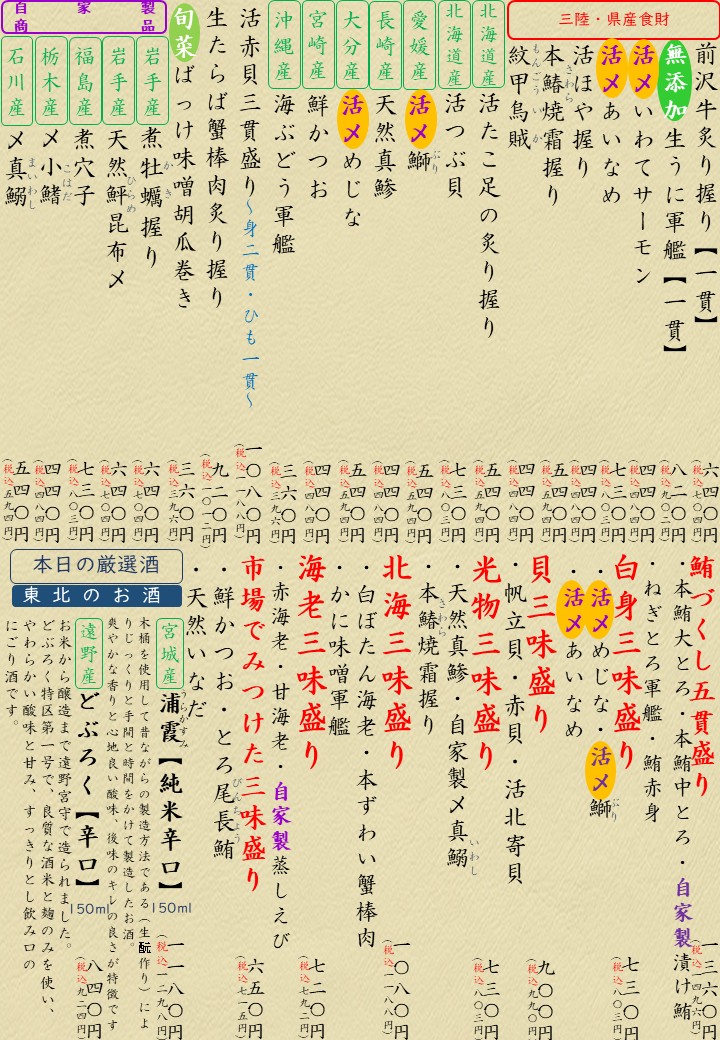 三陸・県産食財
前沢牛炙り握り【一貫】
六四〇円
(税込七〇四円)
無添加生うに軍艦【一貫】
八二〇円
(税込九〇二円)
活〆いわてサーモン
四四〇円
(税込四八四円)
活〆あいなめ
七三〇円
(税込八〇三円)
活ほや握り
四四〇円
(税込四八四円)
本鰆焼霜握り
さわら
五四〇円
(税込五九四円)
紋甲烏賊
もんごういか
四四〇円
(税込四八四円)
北海道産
活たこ足の炙り握り
五四〇円
(税込五九四円)
北海道産
活つぶ貝
七三〇円
(税込八〇三円)
愛媛産
活〆鰤
ぶり
五四〇円
(税込五九四円)
長崎産
天然真鯵
四四〇円
(税込四八四円)
大分産
活〆めじな
五四〇円
(税込五九四円)
宮崎産
鮮かつお
四四〇円
(税込四八四円)
沖縄産
海ぶどう軍艦
三六〇円
(税込三九六円)
活赤貝三貫盛り～身二貫・ひも一貫～
一〇八〇円
(税込一一八八円)
生たらば蟹棒肉炙り握り
九二〇円
(税込一〇一二円)
旬菜ばっけ味噌胡瓜巻き
三六〇円
(税込三九六円)
自家製
商品
岩手産
煮牡蠣握り
かき
六四〇円
(税込七〇四円)
岩手産
天然鮃昆布〆
ひらめ
六四〇円
(税込七〇四円)
福島産
煮穴子
七三〇円
(税込八〇三円)
栃木産
〆小鰭
こはだ
四四〇円
(税込四八四円)
石川産
〆真鰯
まいわし
五四〇円
(税込五九四円)
鮪づくし五貫盛り
・本鮪大とろ・本鮪中とろ・自家製漬け鮪
・ねぎとろ軍艦・鮪赤身
一三六〇円
(税込一四九六円)
白身三味盛り
・活〆めじな・活〆鰤
ぶり
・活〆あいなめ
七三〇円
(税込八〇三円)
貝三味盛り
・帆立貝・赤貝・活北寄貝
九〇〇円
(税込九九〇円)
光物三味盛り
・天然真鯵・自家製〆真鰯
いわし
・本鰆焼霜握り
さわら
七三〇円
(税込八〇三円)
北海三味盛り
・白ぼたん海老・本ずわい蟹棒肉
・かに味噌軍艦
一〇八〇円
(税込一一八八円)
海老三味盛り
・赤海老・甘海老・自家製蒸しえび
七二〇円
(税込七九二円)
市場でみつけた三味盛り
・鮮かつお・とろ尾長鮪
びんちょう
・天然いなだ
六五〇円
(税込七一五円)
本日の厳選酒
東北のお酒
宮城産
浦霞【純米辛口】
うらかすみ
150ml
一一八〇円
(税込一二九八円)
木桶を使用して昔ながらの製造方法である(生酛作り)によ
りじっくりと手間と時間をかけて製造したお酒。
爽やかな香りと心地良い酸味、後味のキレの良さが特徴です
遠野産
どぶろく【辛口】
150ml
八四〇円
(税込九二四円)
お米から醸造まで遠野宮守で造られました。
どぶろく特区第一号で、良質な酒米と麹のみを使い、
やわらかい酸味と甘み、すっきりとし飲み口の
にごり酒です。